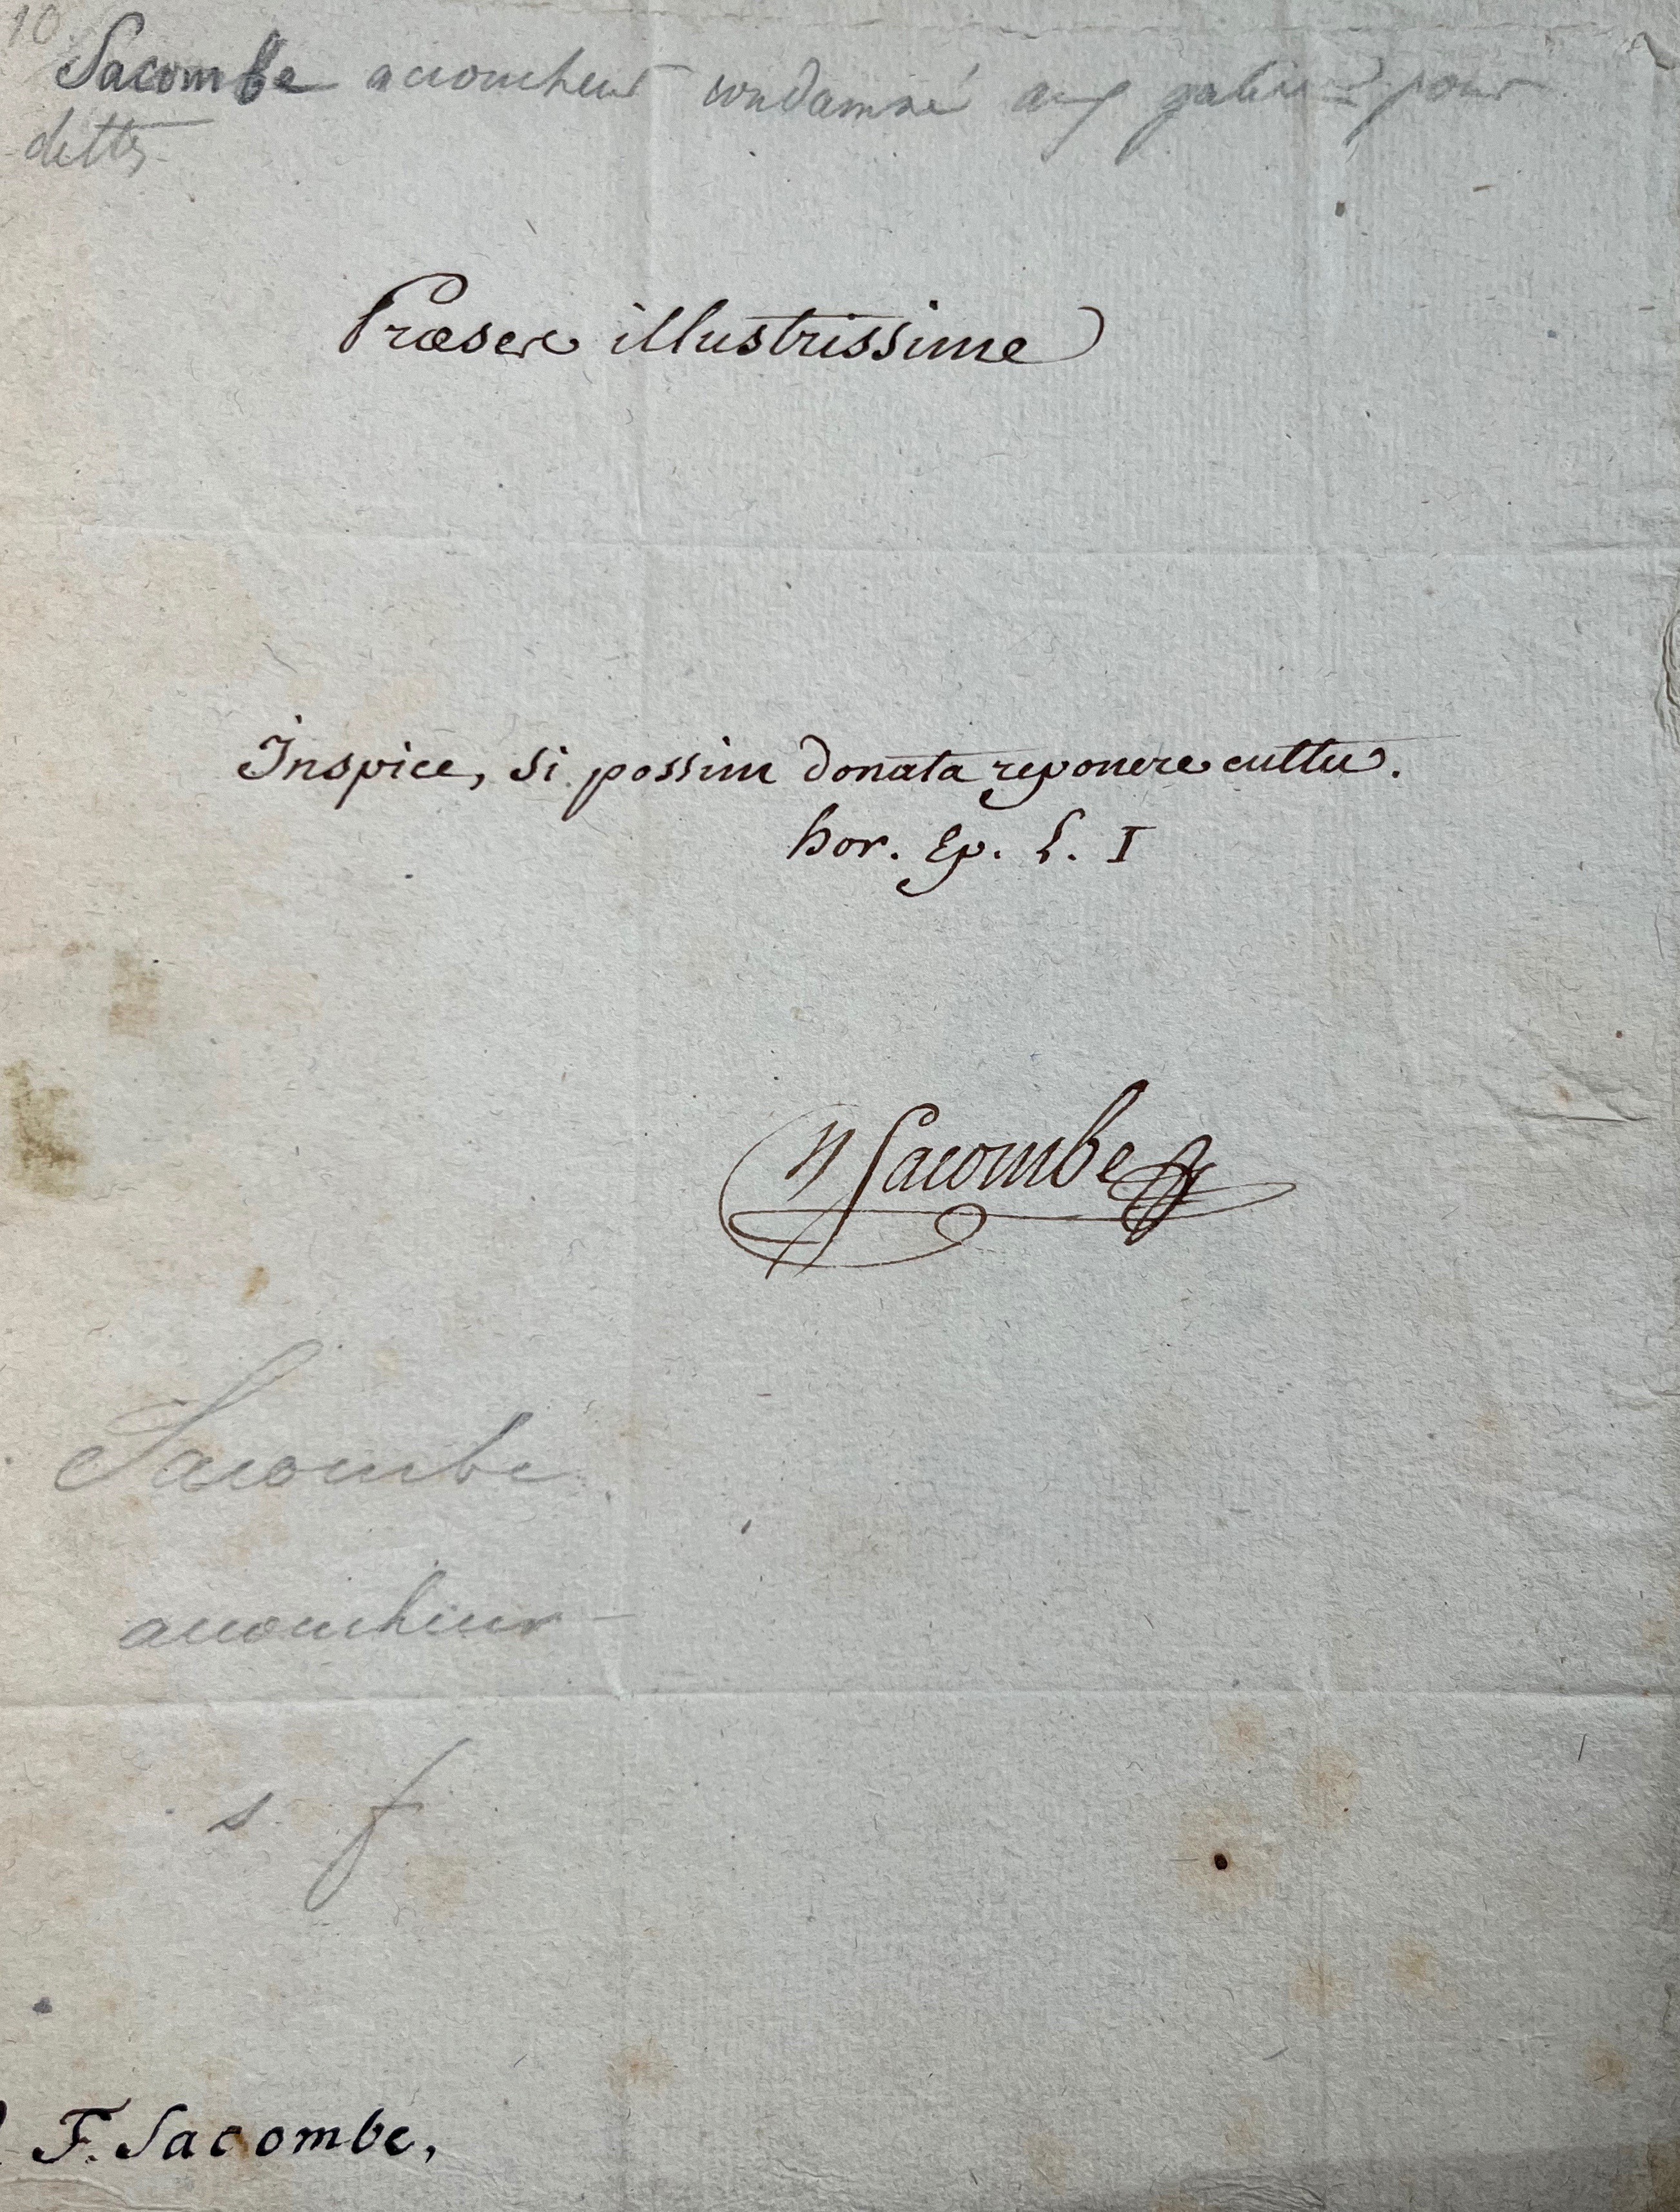 10.
Sacombe accoucheur condamné aux galères pour
dettes
Præses illustrissime
Inspice, si possim donata reponere cultu.
hor. Ep. L. I
Sacombe
Sacombe
accoucheur
s. f
F. Sacombe,